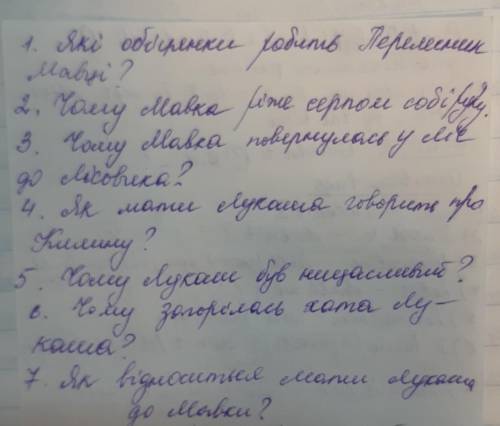 1. Які обіцянки робить Перелесник
Мавці?
2. Чому Мавка ріже серпом собі руку.
3. Чому Мавка повернулась у ліс
до Лісовика?
4. Як мати Лукаша говорить про
Килину?
5. Чому Лукаш був нещасливий?
6. Чому загорілась хата Лу-
каша?
7. Як відноситься мати Лукаша
до Мавки?